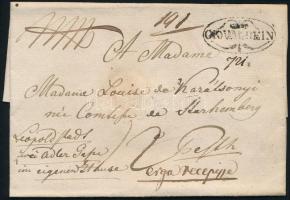 NOWAREIN
A Madame
Madame Louise de Karátsonyi
née Comtesse de Starhemberg
Leopold stadt
zwei Adler Gasse
im eigenen Hause
Pesth
erga recepisse